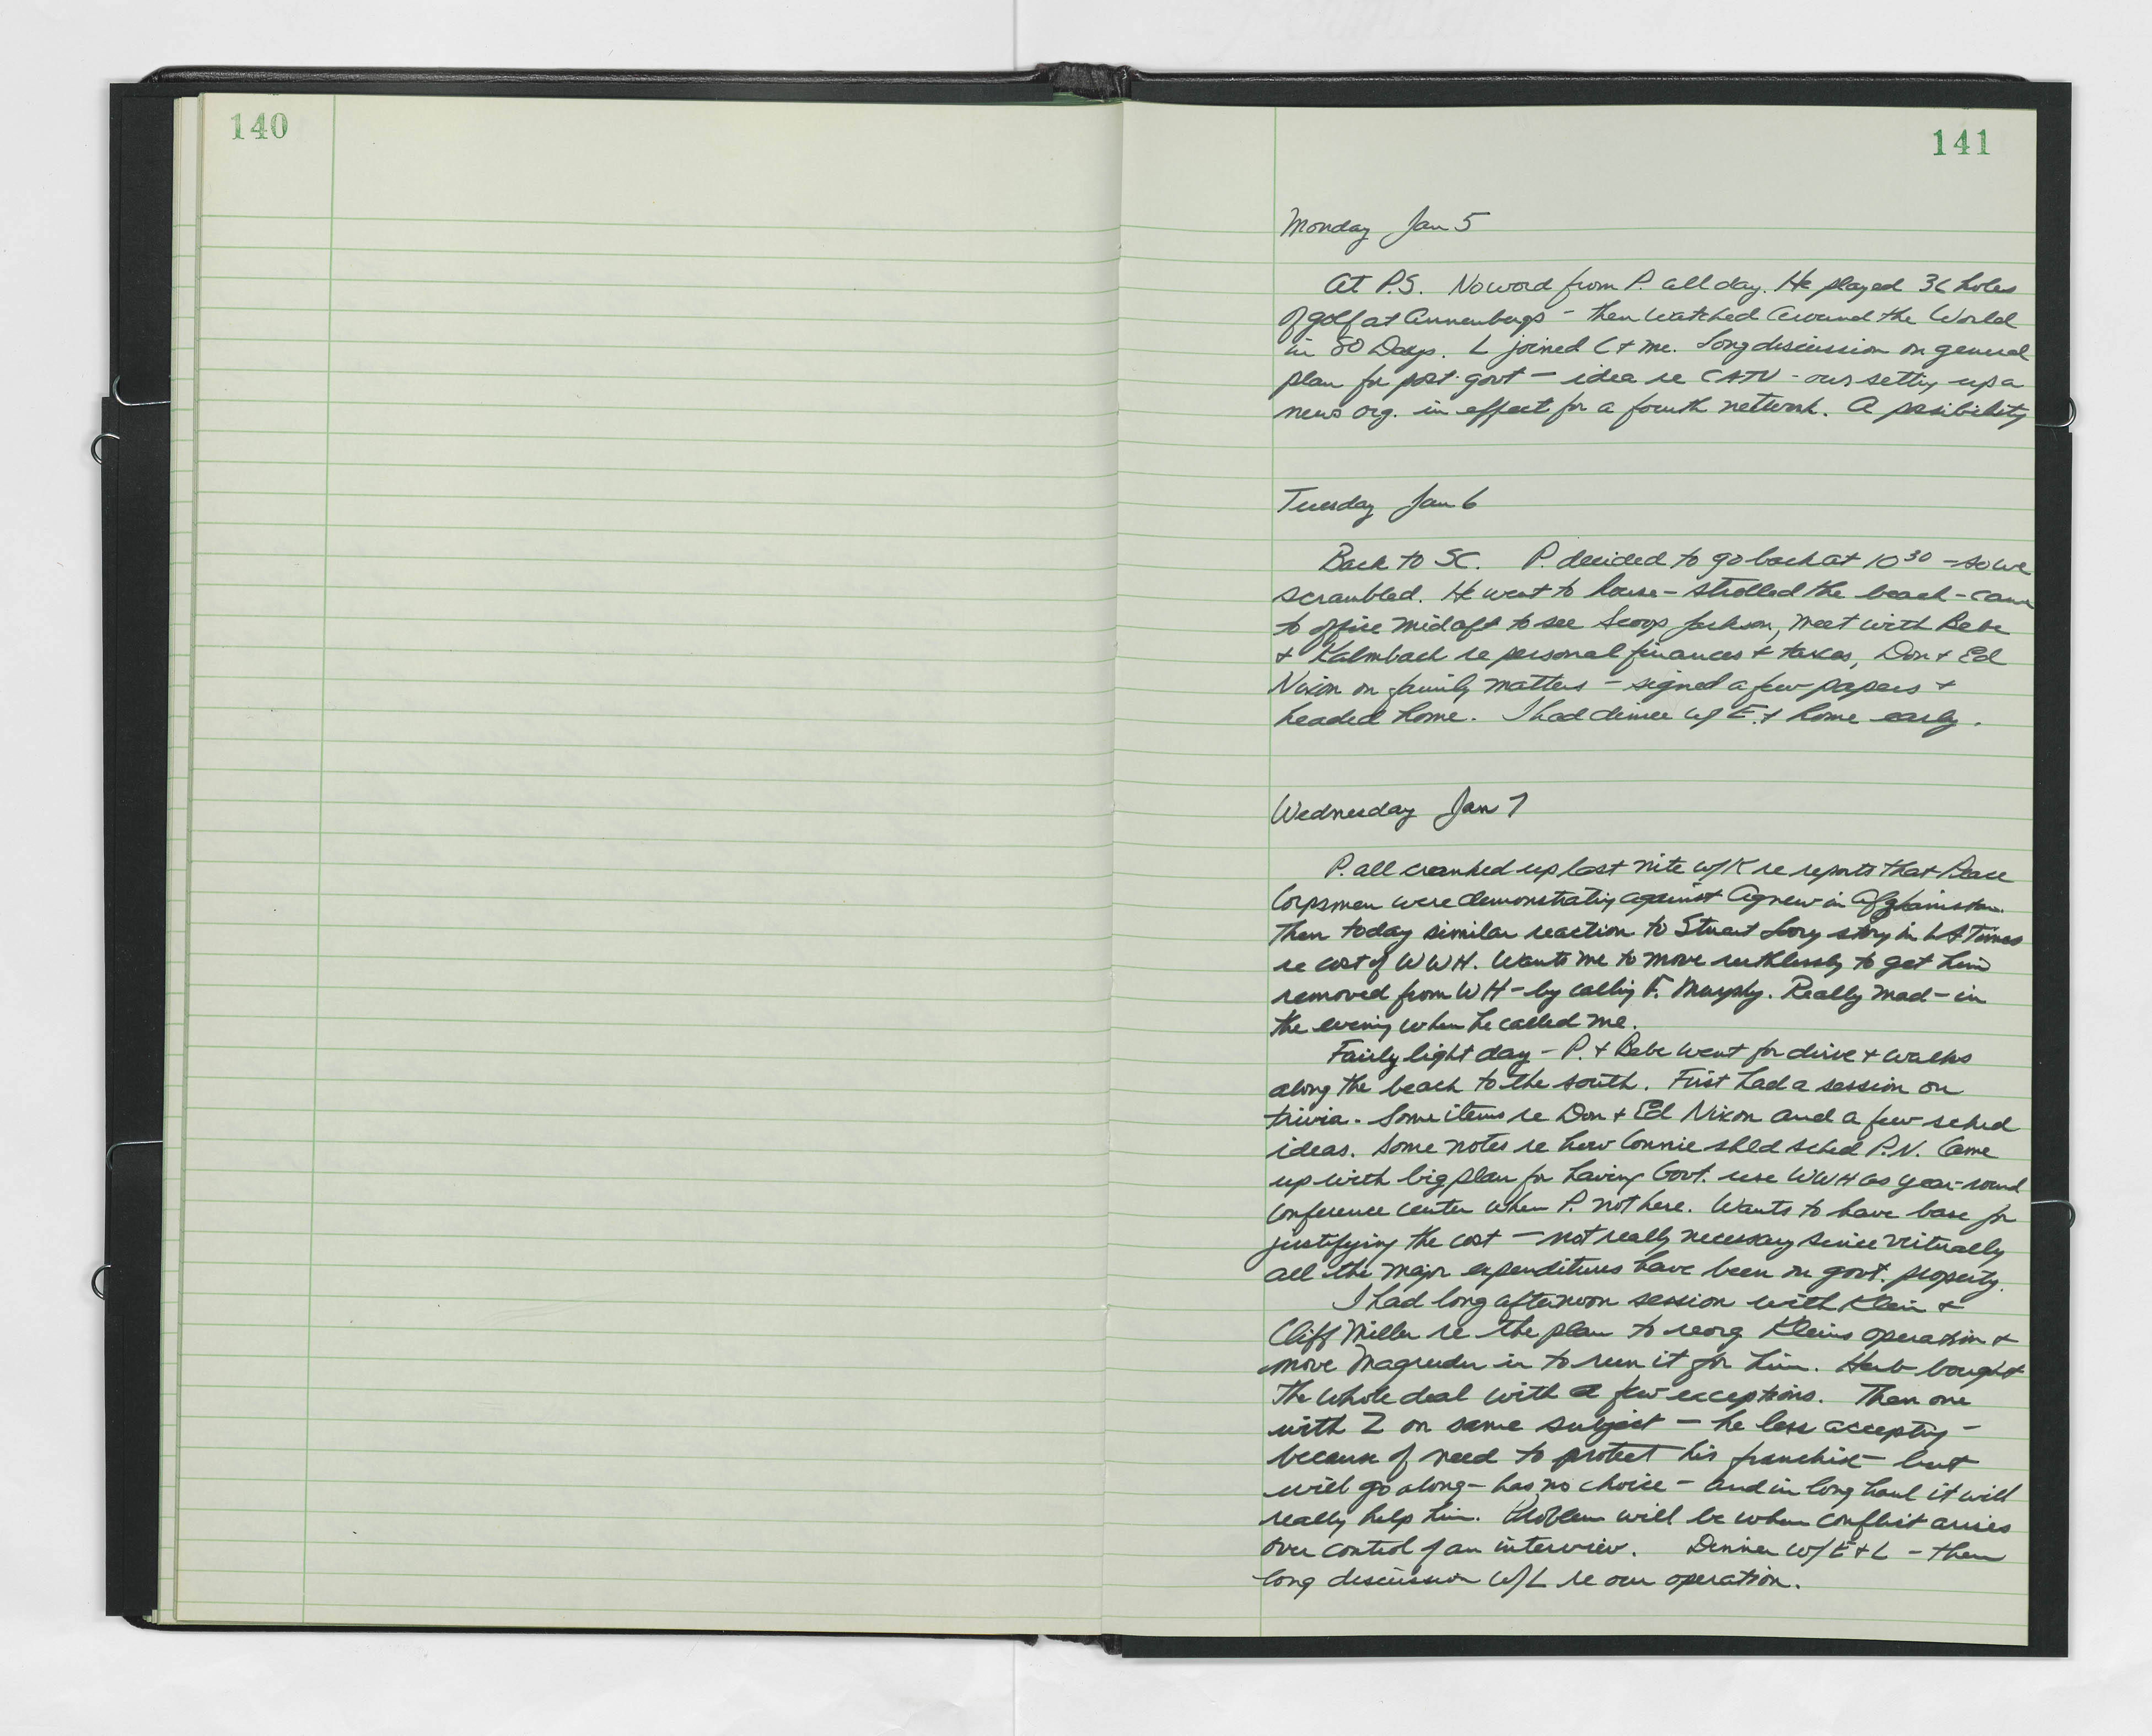 140
141
Monday Jan 5
At P.S. No word from P. all day. He played 36 holes
of golf at Annenbergs - then watched Around the World
in 80 Days. L joined C + me. Long discussion on general
plan for post-govt - idea re CATV - our setting up a
news org. in effect for a fourth network. A possibility
Tuesday Jan 6
Back to SC. P. decided to go back at 10 30 - so we
scrambled. He went to house - strolled the beach - came
to office mid aft to see Scoop Jackson, meet with Bebe
+ Kalmbach re personal finances + taxes, Don + Ed
Nixon on family matters - signed a few papers +
headed home. I had dinner w/ E. + home early.
Wednesday Jan 7
P. all cranked up last nite w/K re reports that Peace
Corpsmen were demonstrating against Agnew in Afghanistan.
Then today similar reaction to Stuart Loory story in LA Times
re cost of WWH. Wants me to move ruthlessly to get him
removed from WH - by calling F. Murphy. Really mad - in
the evening when he called me.
Fairly light day - P. + Bebe went for drive + walks
along the beach to the south. First had a session on
trivia. Some items re Don + Ed Nixon and a few sched
ideas. Some notes re how Connie shld sched P.N. Came
up with big plan for having Govt. use WWH as year-round
conference center when P. not here. Wants to have base for
justifying the cost - not really necessary since virtually
all the major expenditures have been on govt. property.
I had long afternoon session with Klein +
Cliff Miller re the plan to reorg Kleins operation +
move Magruder in to run it for him. Herb bought
the whole deal with a few exceptions. Then one
with Z on same subject - he less accepting -
because of need to protect his franchise - but
will go along - has no choice - and in long haul it will
really help him. Problem will be when conflict arises
over control of an interview. Dinner w/ E + L - then
long discussion w/L re our operation.